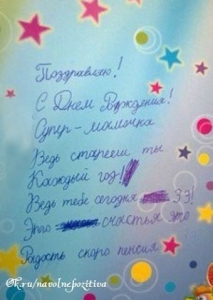 Поздравляю!
С Днем Рождения!
Супер-мамочка
Ведь стареем ты
Каждый год!
Ведь тебе сегодня 33!
Это счастья это
Радость скоро пенсия
ok.ru/navolnepozitiva